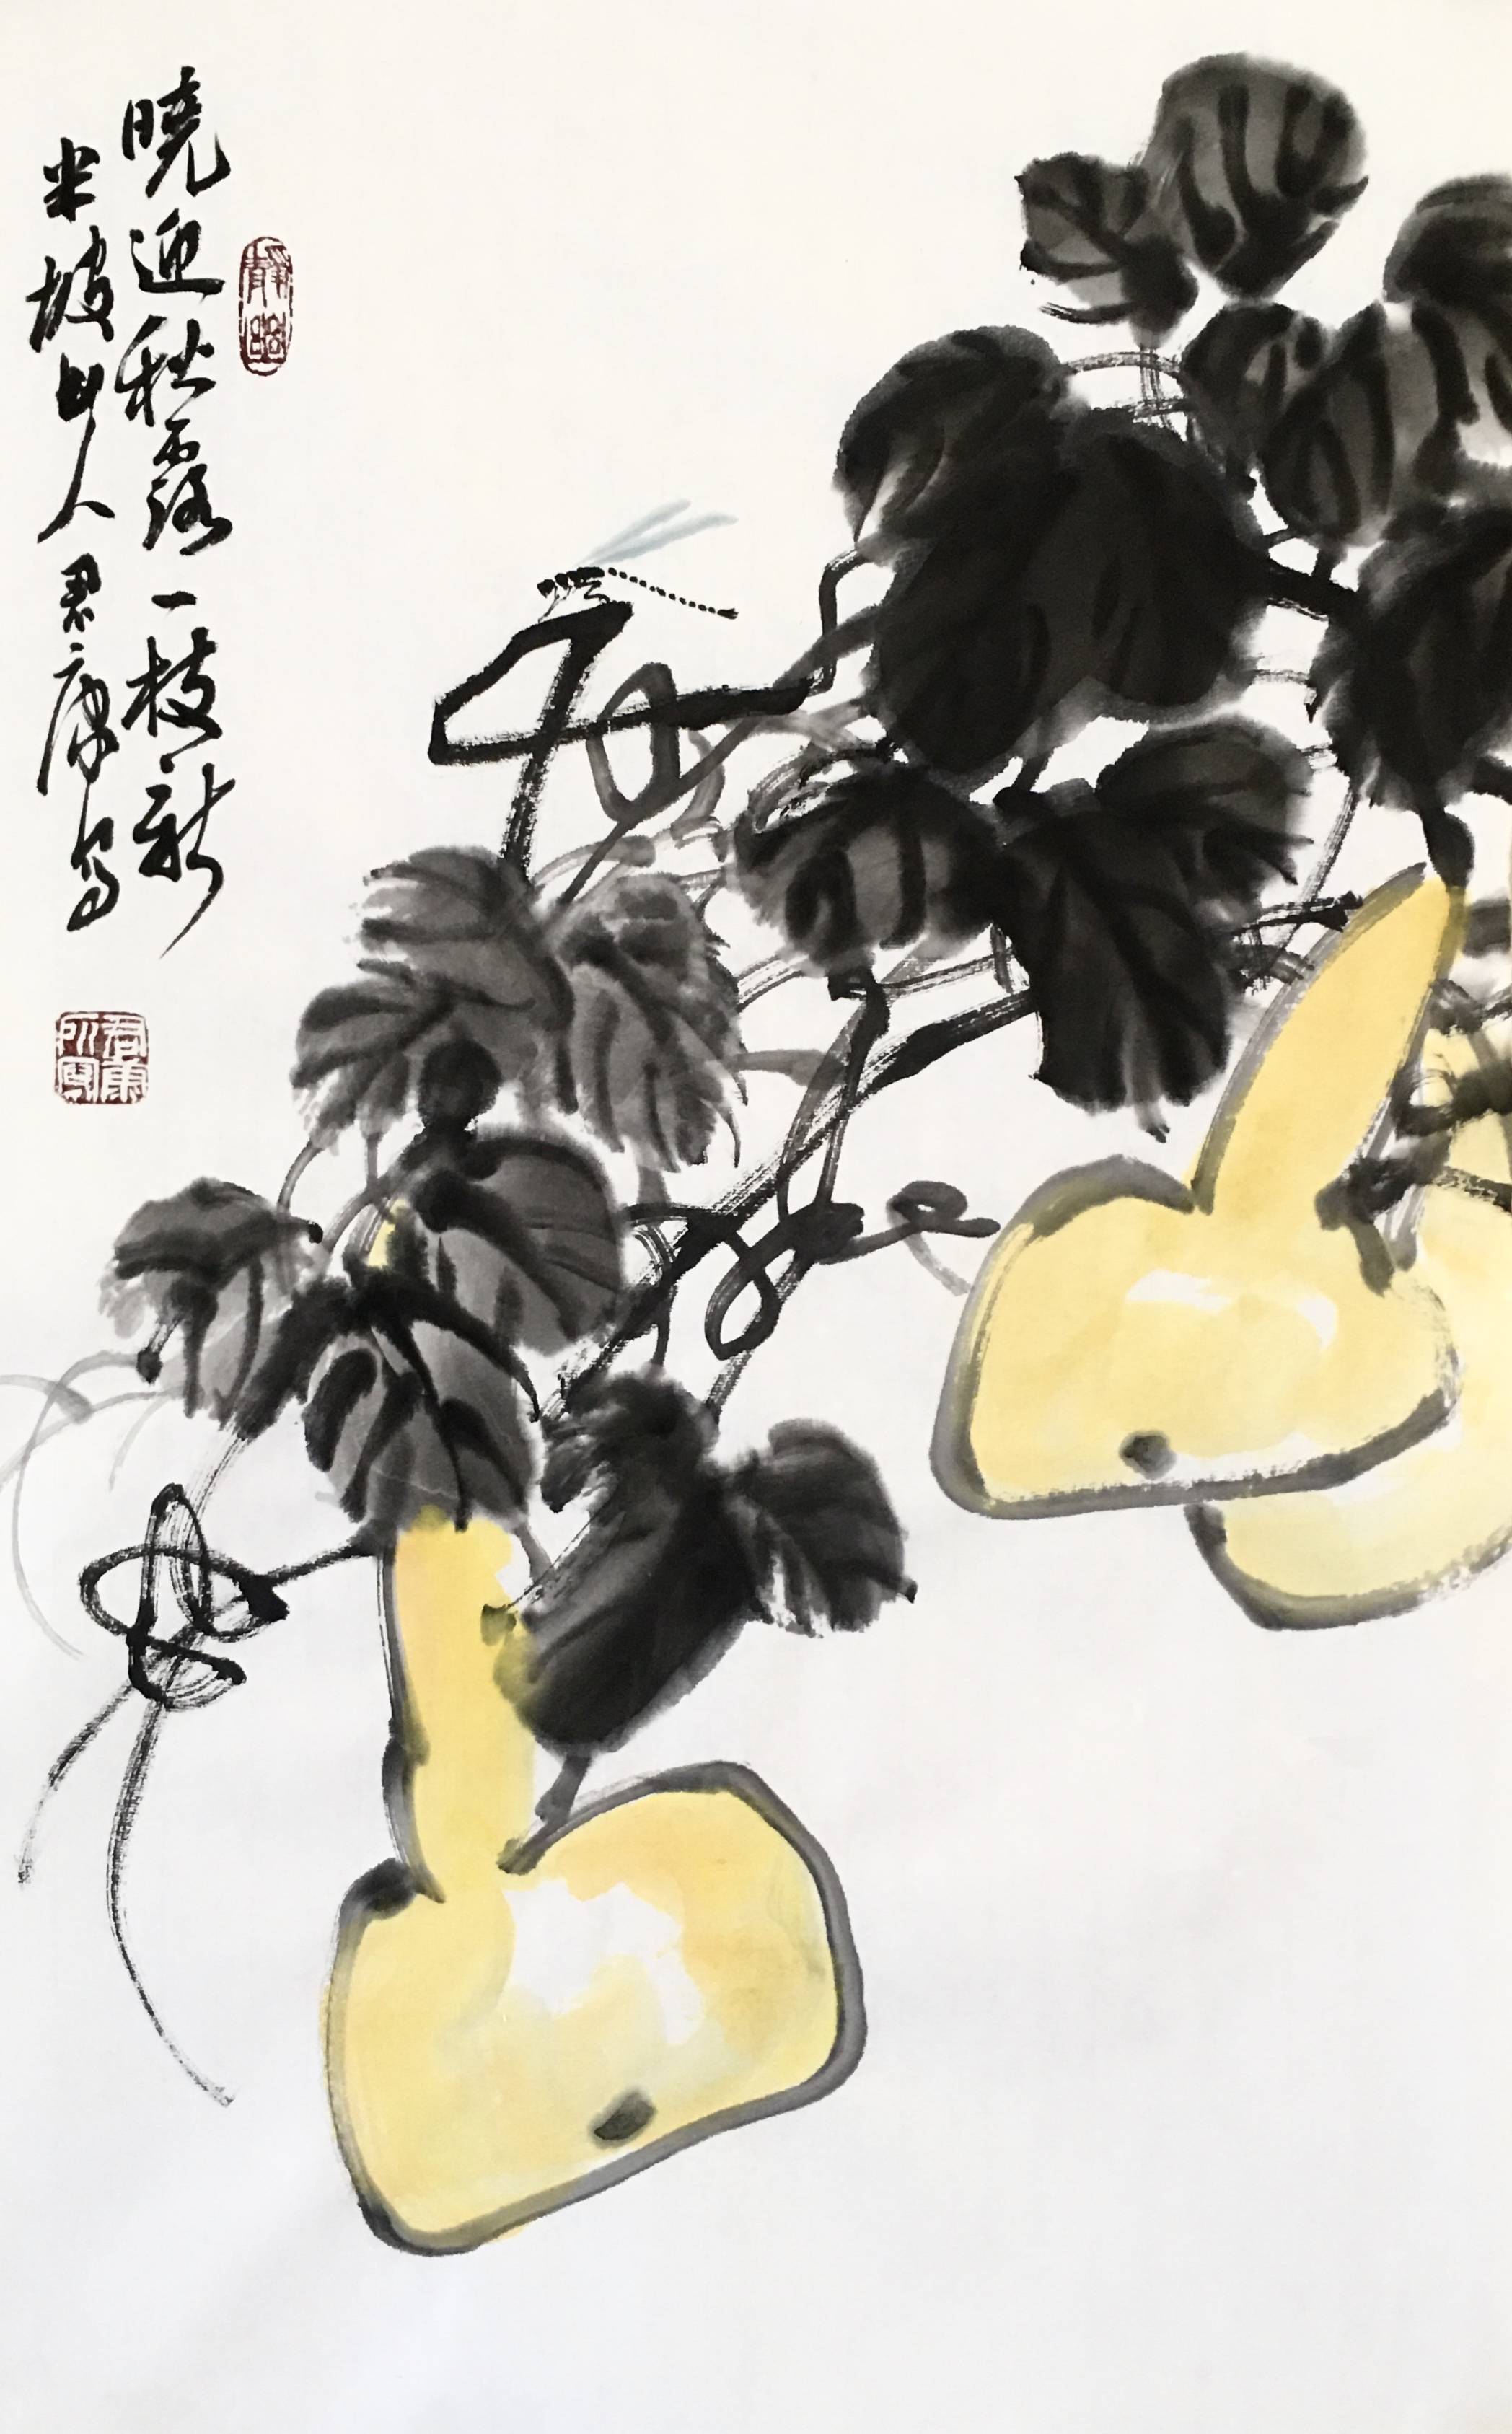 晓迎秋露一枝新
米坡山人君康写
静幽
君康所写